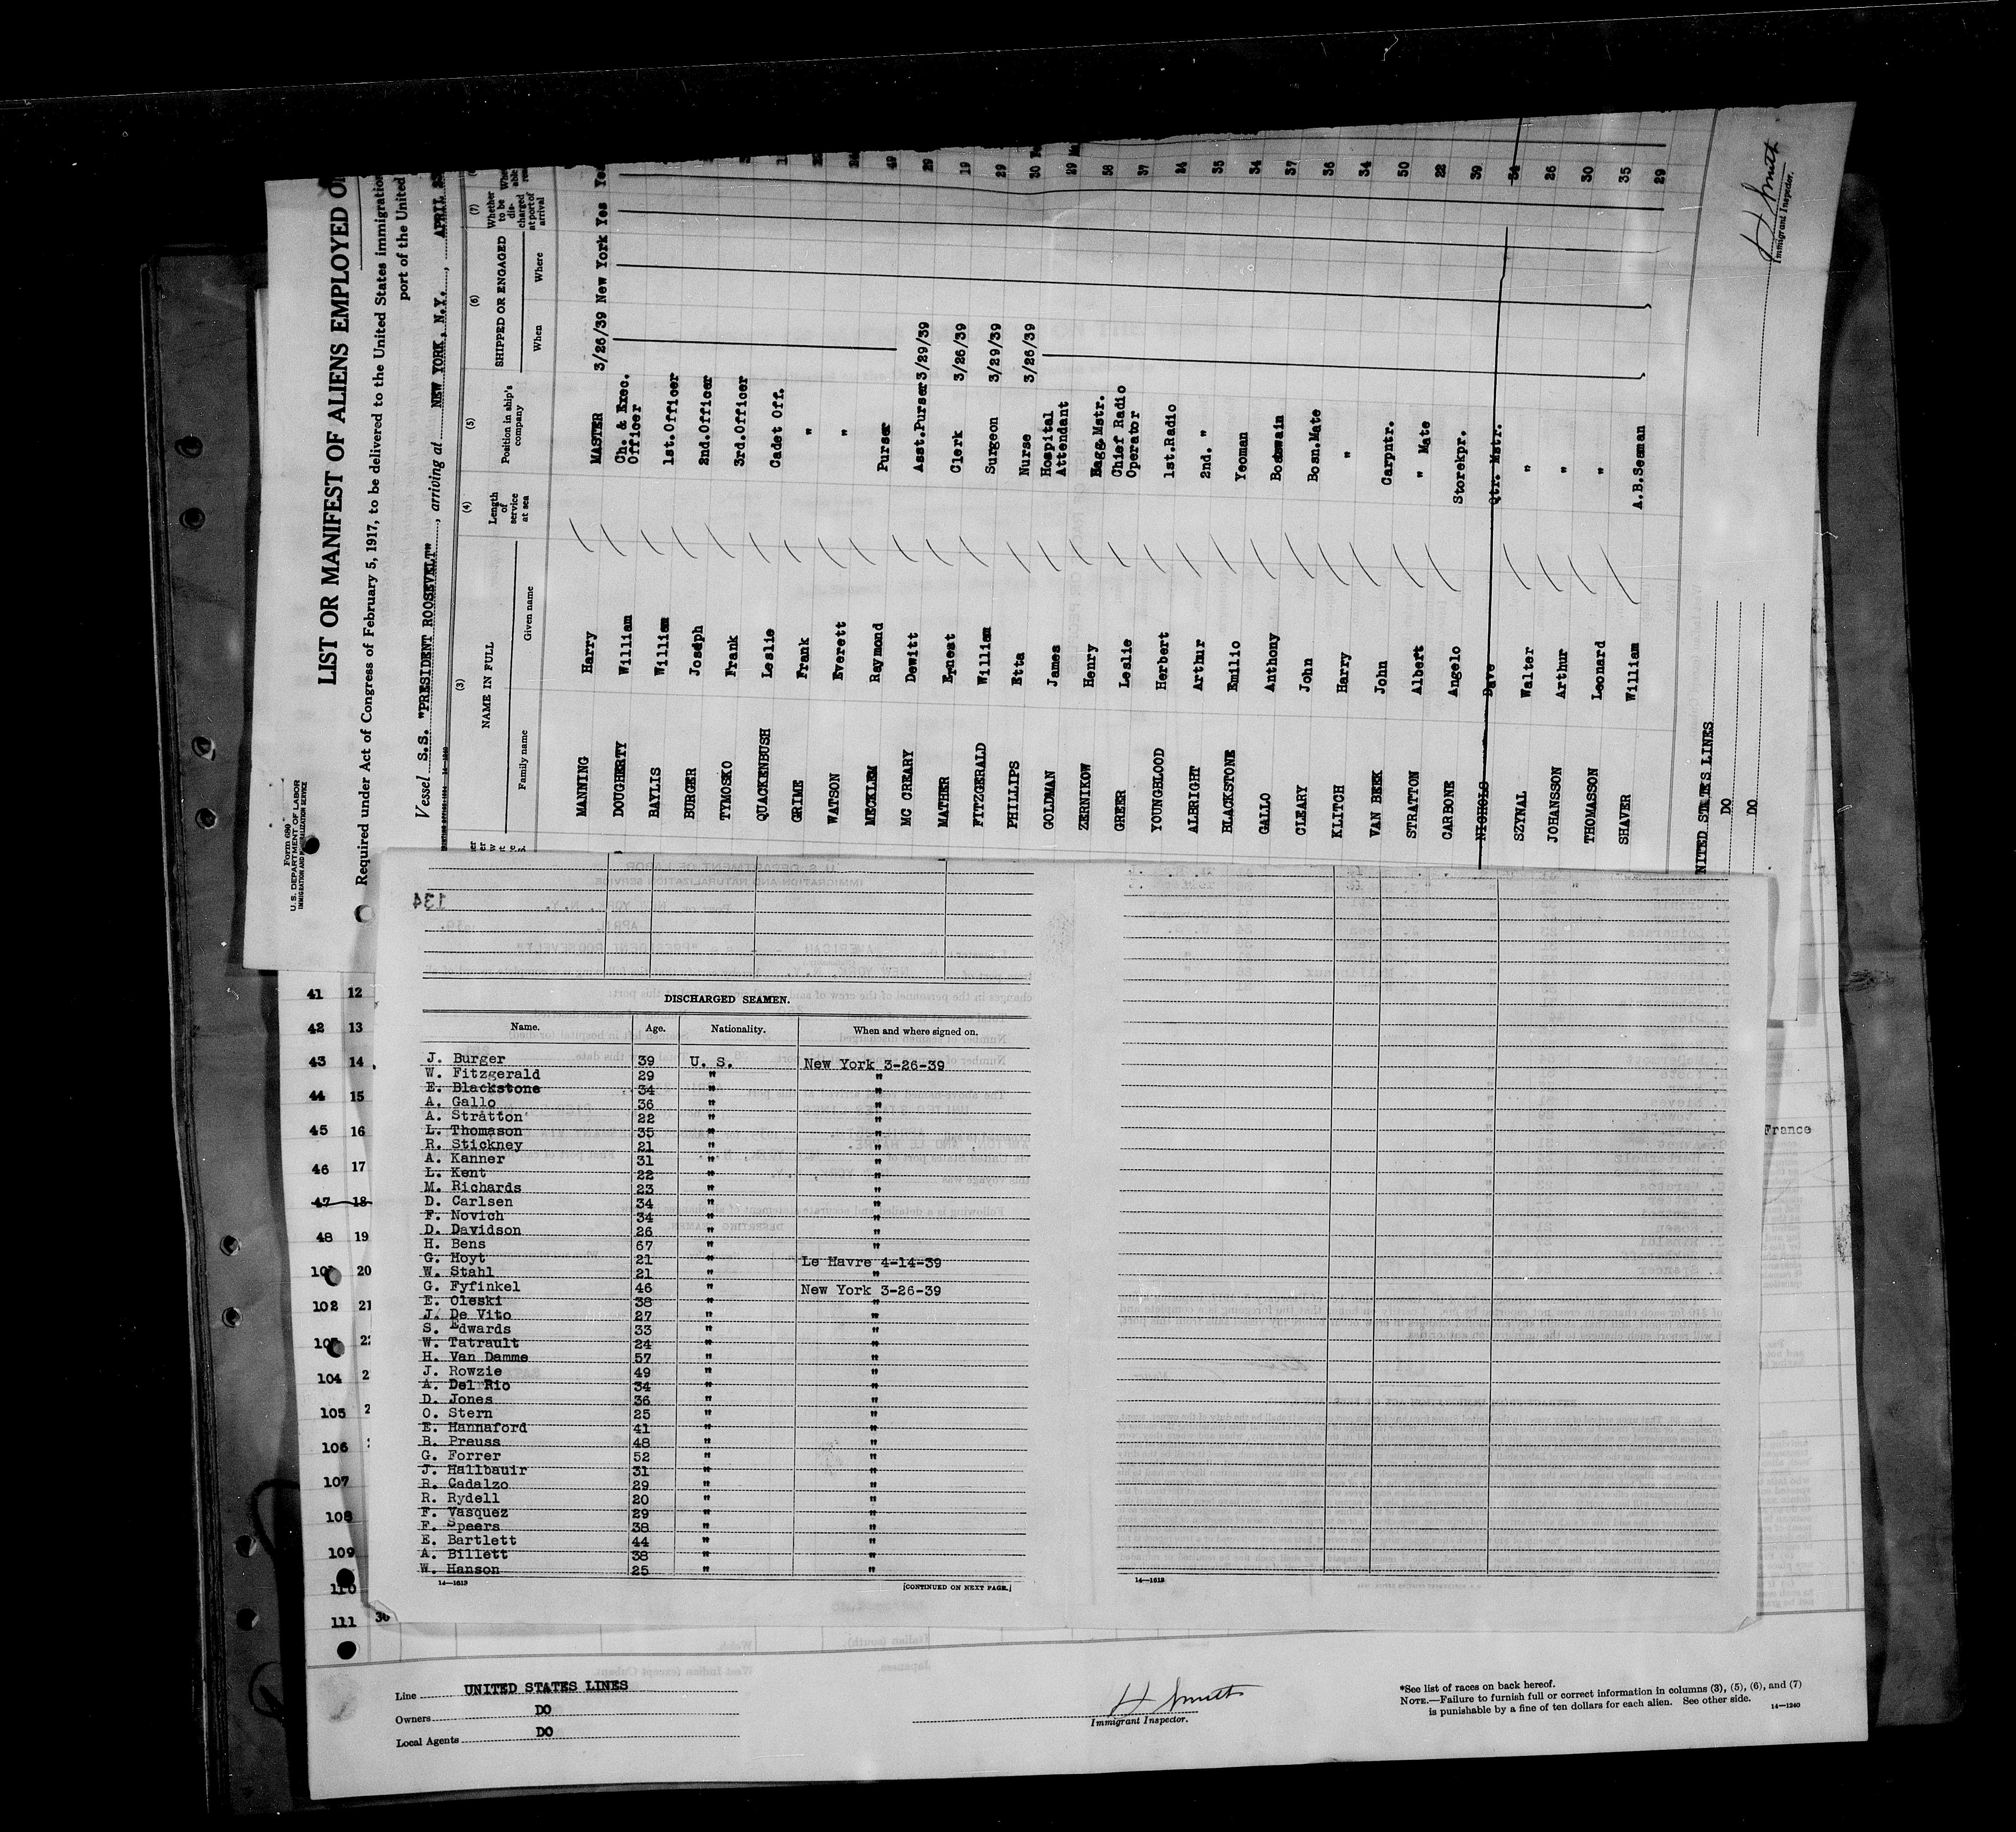 Form 680
U. S. DEPARTMENT OF LABOR
IMMIGRATION AND NATURALIZATION SERVICE
LIST OR MANIFEST OF ALIENS EMPLOYED
Required under Act of Congress of February 5, 1917, to be delivered to the United States immigration
port of the United
Vessel S.S. "PRESIDENT ROOSEVELT", arriving at NEW YORK, N.Y., APRIL
(3) (4) (5) (6) (7)
NAME IN FULL
Family name Given name
Length of service at sea
Position in ship's company
SHIPPED OR ENGAGED
When Where
Whether to be discharged at port of arrival
MANNING Harry MASTER 3/26/39 New York Yes Yes
DOUGHERTY William Ch. & Exec. Officer
BAYLIS William 1st.Officer
BURGER Joseph 2nd.Officer
TYMOSKO Frank 3rd.Officer
QUACKENBUSH Leslie Cadet Off.
GRIME Frank "
WATSON Everett "
MECKLEM Raymond Purser 49
MC CREARY Dewitt Asst.Purser 3/29/39 29
MATHER Ernest Clerk 3/26/39 19
FITZGERALD William Surgeon 3/29/39 29
PHILLIPS Etta Nurse 3/26/39 30
GOLDMAN James Hospital Attendant 29
ZERNIKOW Henry Bagg.Mstr. 58
GREER Leslie Chief Radio Operator 37
YOUNGBLOOD Herbert 1st.Radio 24
ALBRIGHT Arthur 2nd. " 35
BLACKSTONE Emilio Yeoman 34
GALLO Anthony Boatswain 37
CLEARY John Bosn.Mate 36
KLITCH Harry " 34
VAN BEEK John Carpntr. 50
STRATTON Albert " Mate 22
CARBONE Angelo Storekpr. 39
NICHOLS Dave Qtr. Mstr. 34
SZYNAL Walter " 26
JOHANSSON Arthur " 30
THOMASSON Leonard " 35
SHAVER William A.B.Seaman 29
NITED STATES LINES
DO
DO
H Smith
Immigrant Inspector.
134
DISCHARGED SEAMEN.
Name. Age. Nationality. When and where signed on.
J. Burger 39 U. S. New York 3-26-39
W. Fitzgerald 29 " "
E. Blackstone 34 " "
A. Gallo 36 " "
A. Stratton 22 " "
L. Thomason 35 " "
R. Stickney 21 " "
A. Kanner 31 " "
L. Kent 22 " "
M. Richards 23 " "
D. Carlsen 34 " "
F. Novich 34 " "
D. Davidson 26 " "
H. Bens 67 " "
G. Hoyt 21 " Le Havre 4-14-39
W. Stahl 21 " "
G. Fyfinkel 46 " New York 3-26-39
E. Oleski 38 " "
J. De Vito 27 " "
S. Edwards 33 " "
W. Tatrault 24 " "
H. Van Damme 57 " "
J. Rowzie 49 " "
A. Del Rio 34 " "
D. Jones 36 " "
O. Stern 25 " "
E. Hannaford 41 " "
B. Preuss 48 " "
G. Forrer 52 " "
J. Hallbauir 31 " "
R. Cadalzo 29 " "
R. Rydell 20 " "
F. Vasquez 29 " "
F. Speers 38 " "
E. Bartlett 44 " "
A. Billett 38 " "
W. Hanson 25 " "
14—1613
[CONTINUED ON NEXT PAGE.]
14—1613
41 12
42 13
43 14
44 15
45 16
46 17
47 18
48 19
20
102 21
104
105
106
107
108
109
110
111 30
France
Line UNITED STATES LINES
Owners DO
Local Agents DO
H Smith
Immigrant Inspector.
*See list of races on back hereof.
NOTE.—Failure to furnish full or correct information in columns (3), (5), (6), and (7)
is punishable by a fine of ten dollars for each alien. See other side.
14—1240